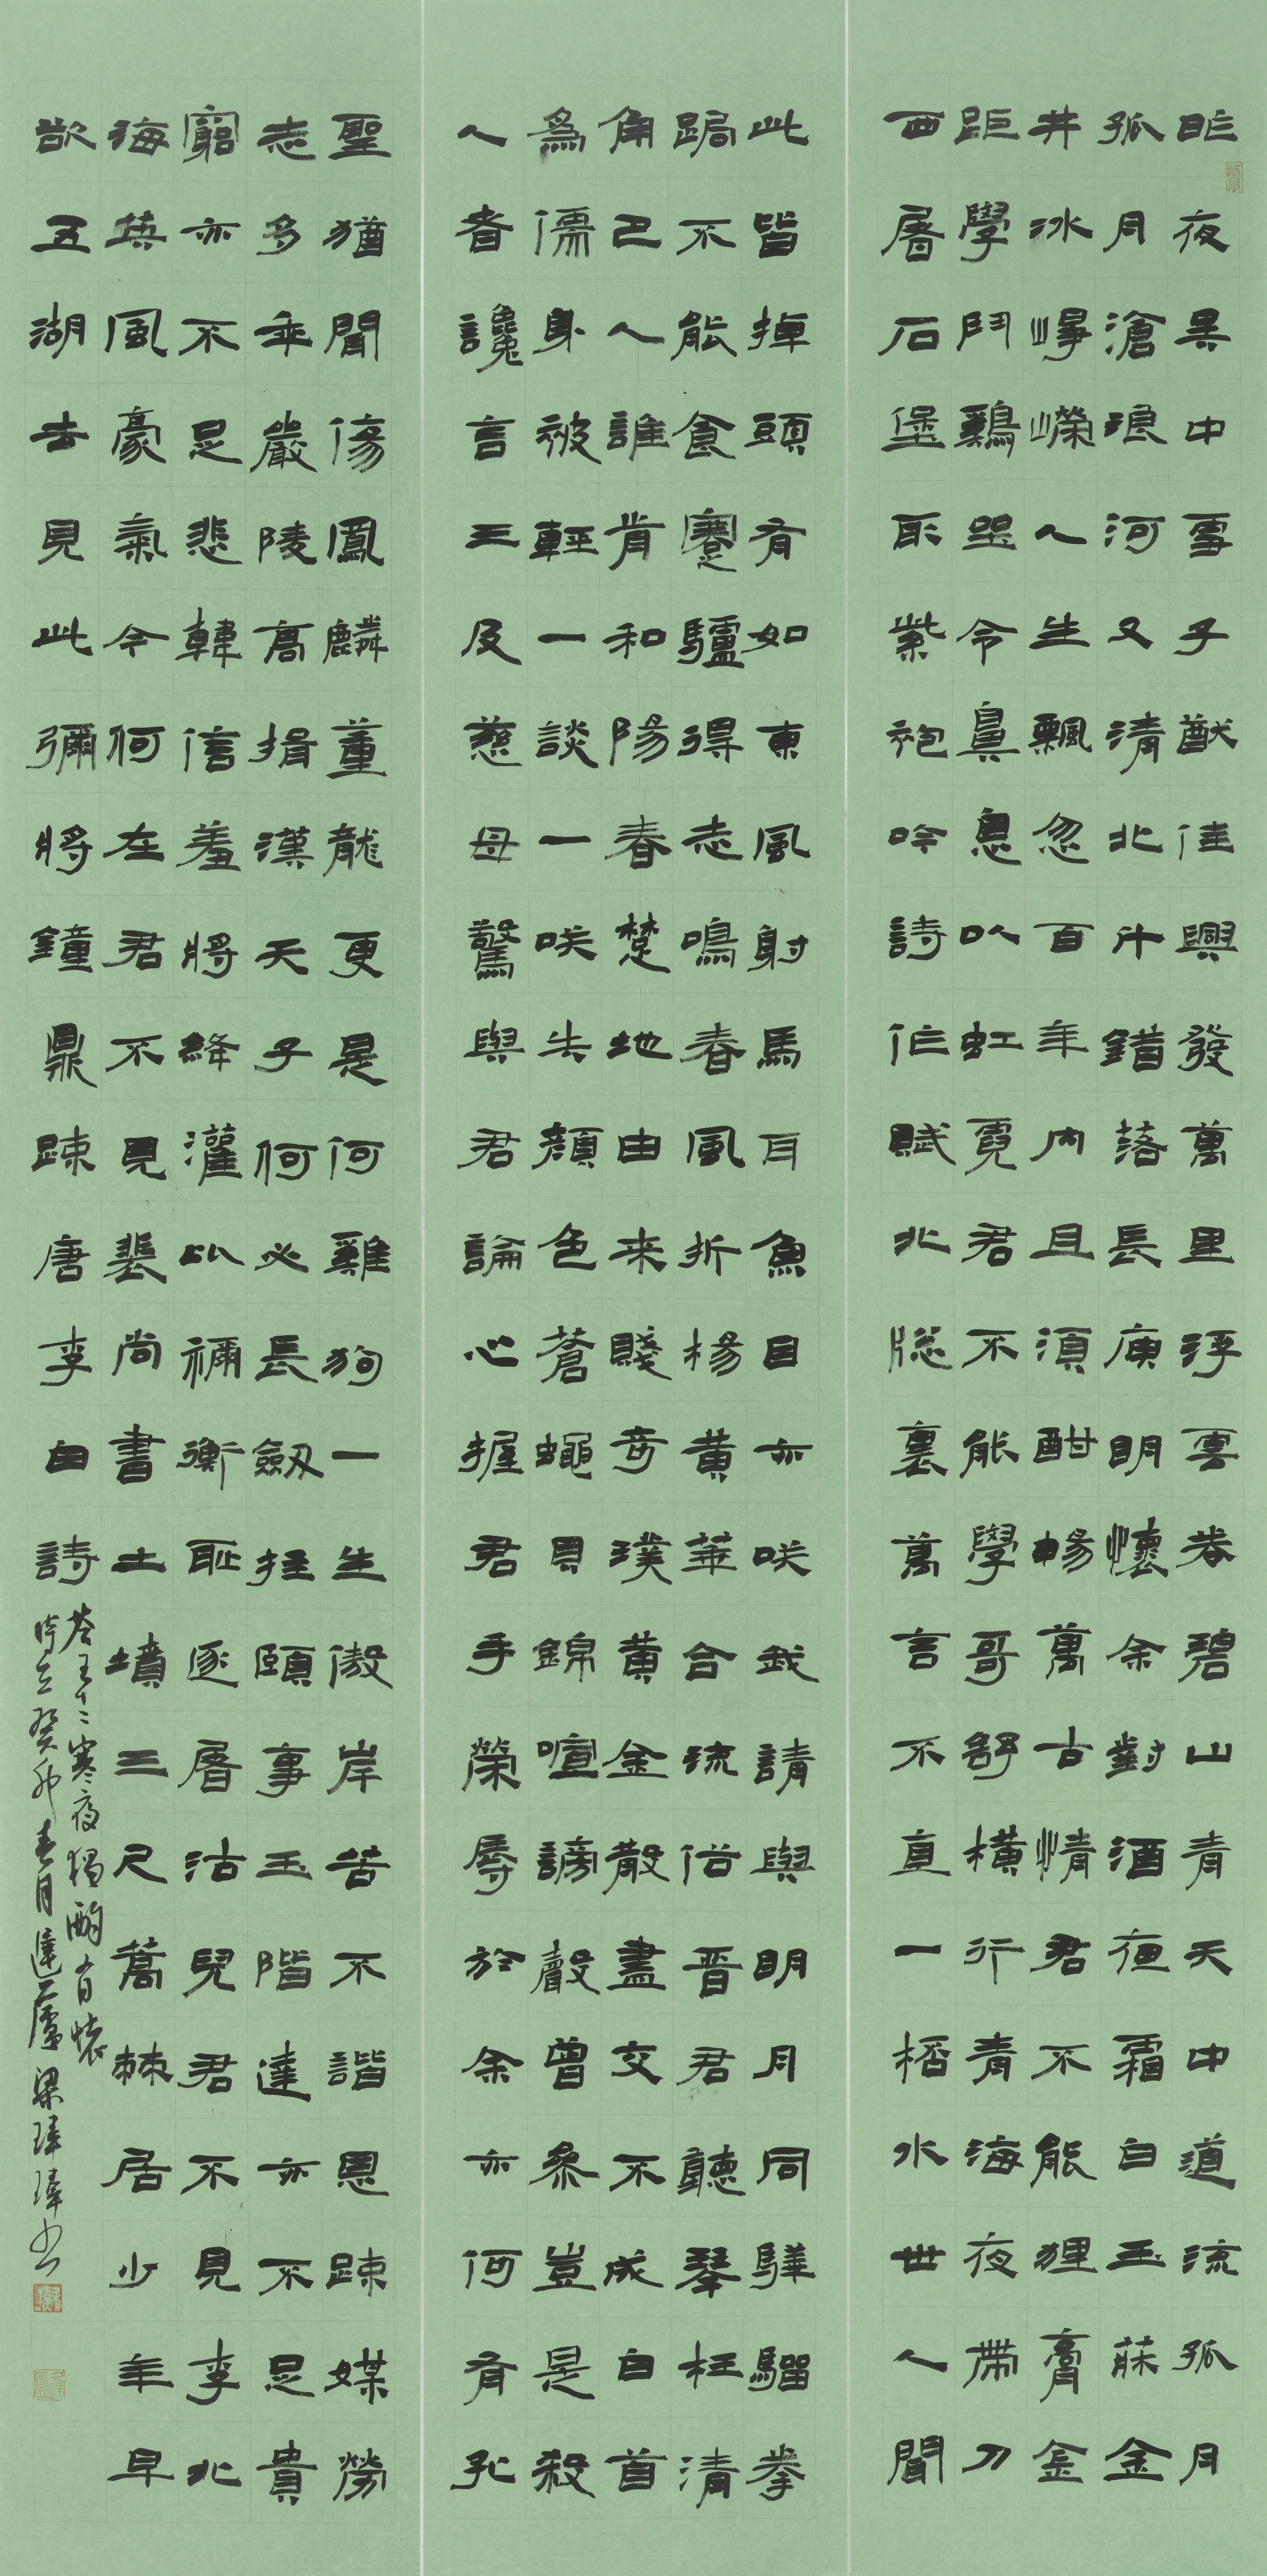 昨夜吳中雪子猷佳興發萬里浮雲卷碧山青天中道流孤月
孤月滄浪河又清北斗錯落長庚明懷余對酒夜霜白玉牀金
井冰崢嶸人生飄忽百年內且須酣暢萬古情君不能狸膏金
距學鬥鷄坐令鼻息吹虹霓君不能學哥舒橫行青海夜帶刀
西屠石堡取紫袍吟詩作賦北牕裏萬言不直一桮水世人聞
此皆掉頭有如東風射馬耳魚目亦咲我請與明月同驊騮拳
跼不能食蹇驢得志鳴春風折楊黃華合流俗晉君聽琴枉清
角巴人誰肯和陽春楚地由來賤奇璞黃金散盡交不成白首
為儒身被輕一談一咲失顏色蒼蠅貝錦喧謗聲曾參豈是殺
人者讒言三及慈母驚與君論心握君手榮辱於余亦何有孔
聖猶聞傷鳳麟董龍更是何雞狗一生傲岸苦不諧恩疎媒勞
志多乖嚴陵高揖漢天子何必長劍拄頤事玉階達亦不足貴
窮亦不足悲韓信羞將絳灌比禰衡恥逐屠沽兒君不見李北
海英風豪氣今何在君不見裴尚書土墳三尺蒿棘居少年早
欲五湖去見此彌將鐘鼎疎唐李白詩
答王十二寒夜獨酌有懷
時在癸卯春月廬梁璋璋書